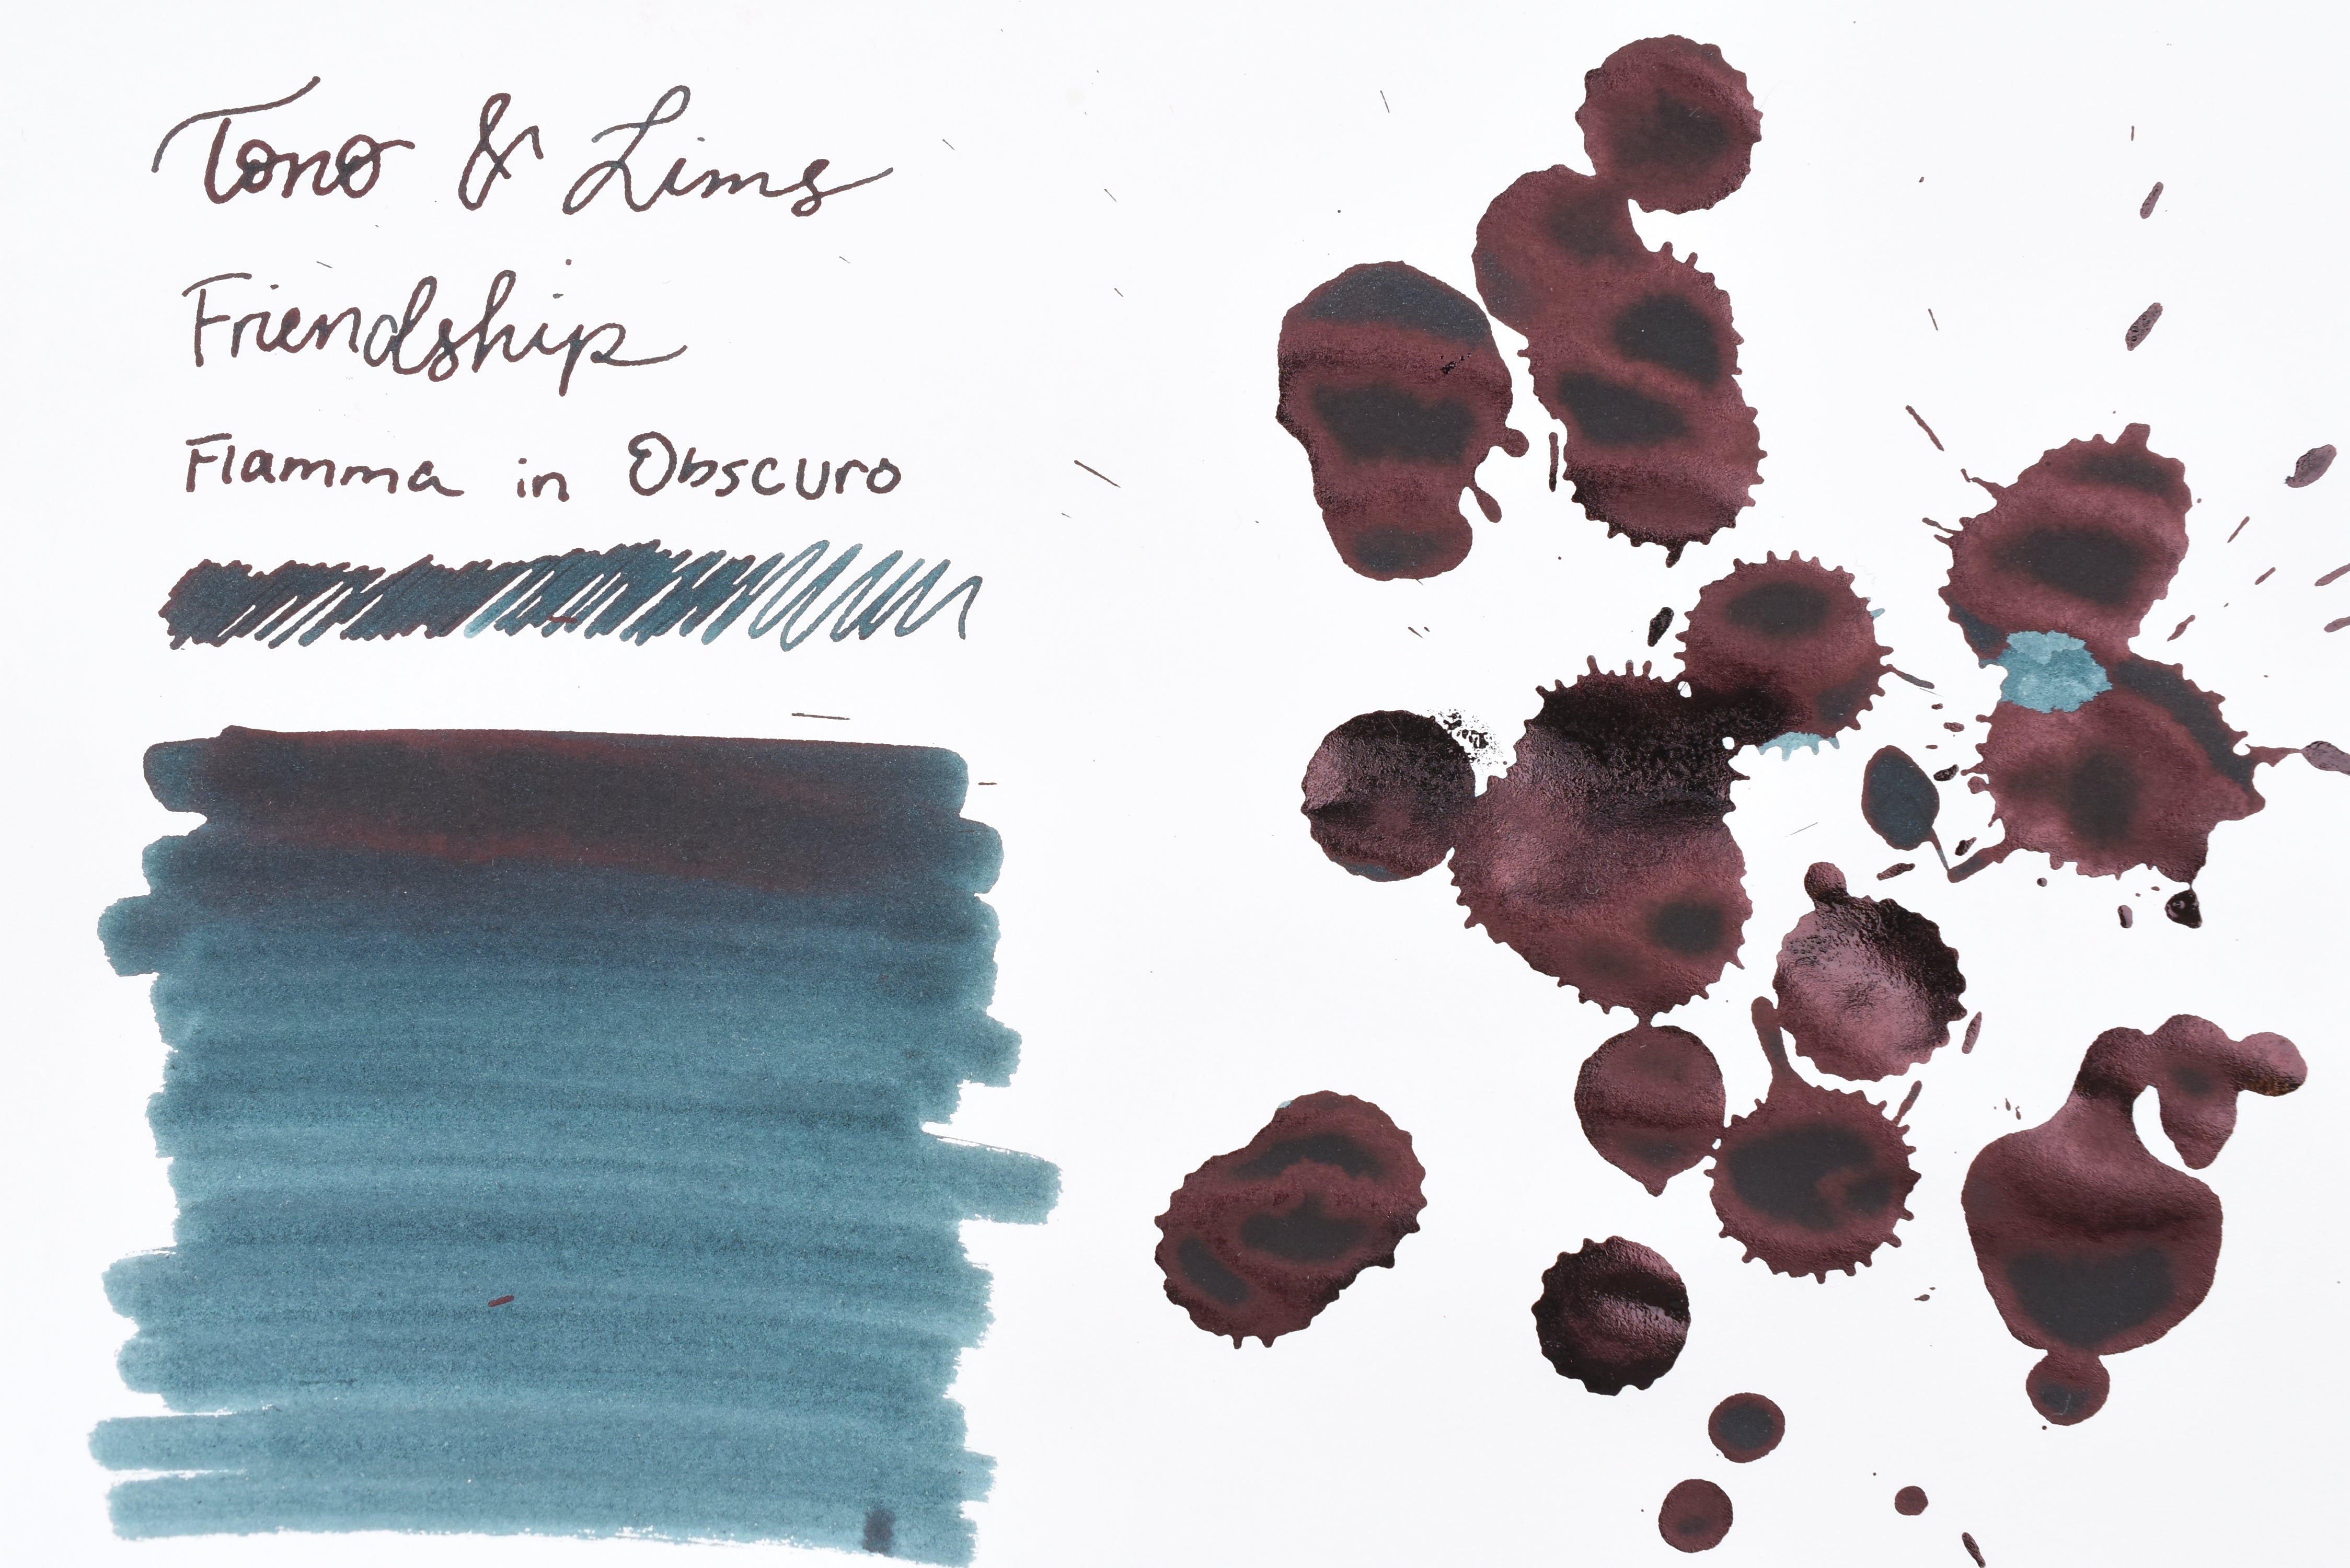 Tono & Lims
Friendship
Flamma in Obscuro